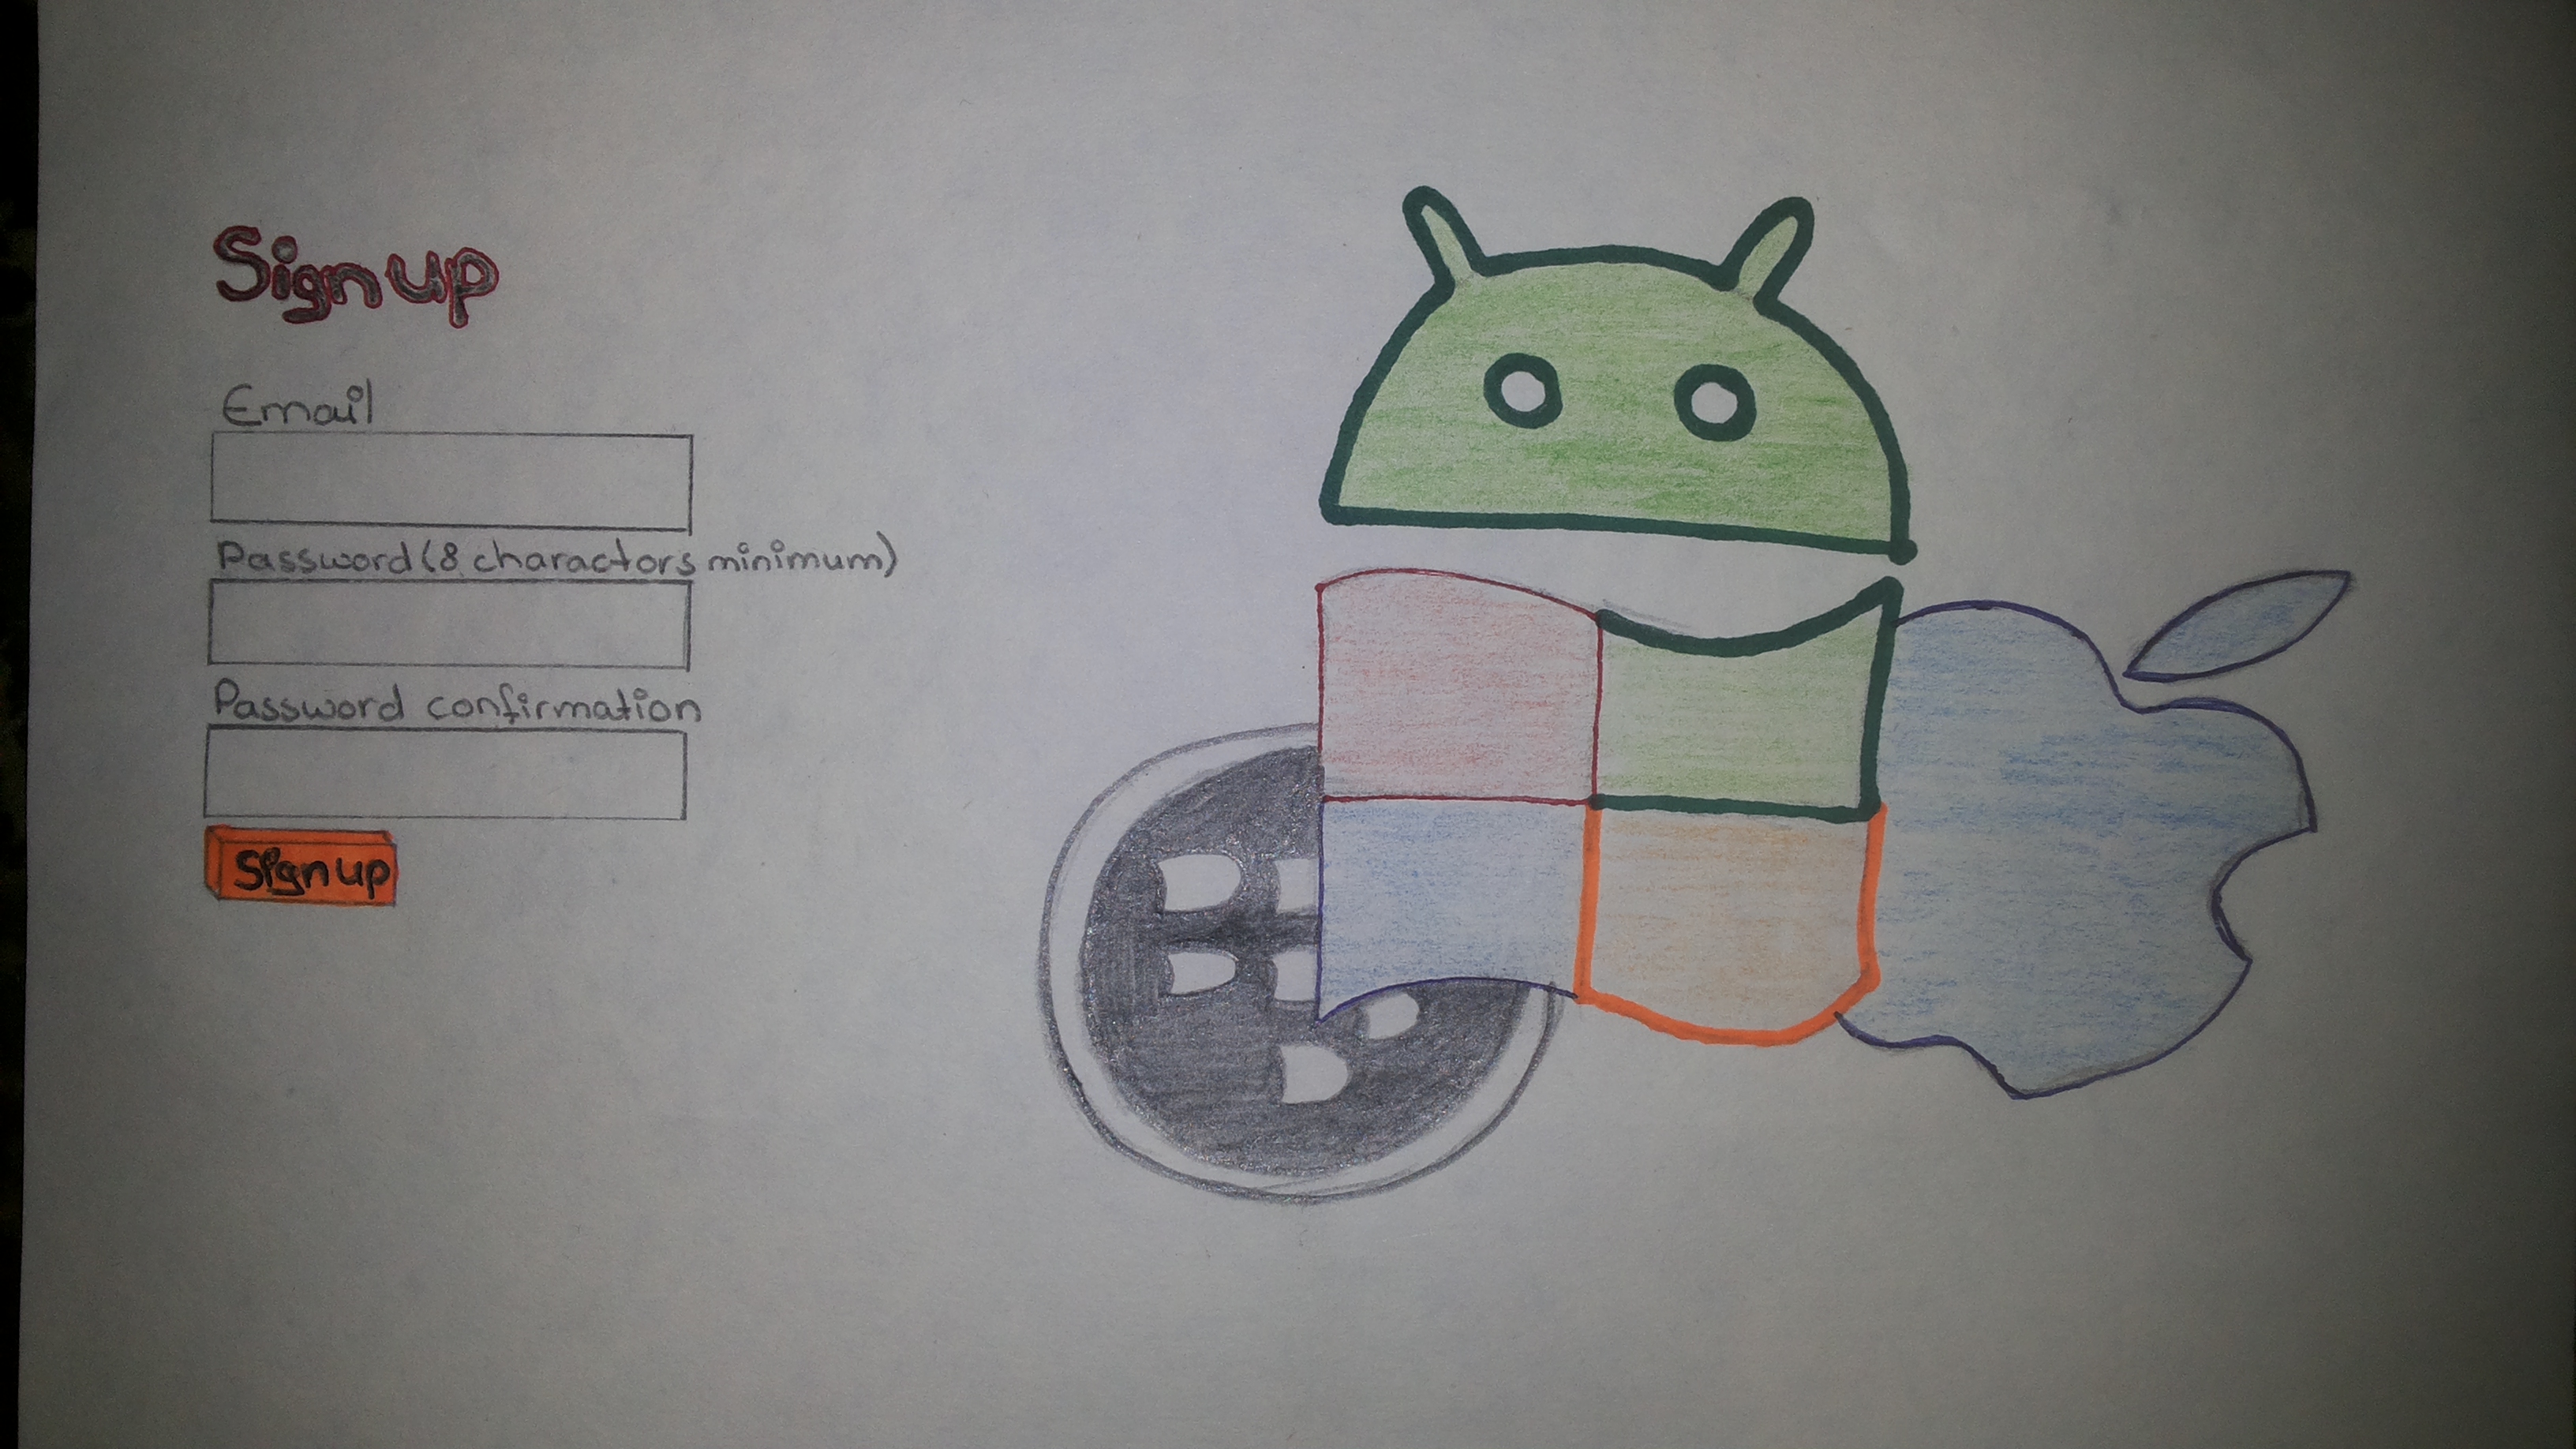 Sign up
Email
Password (8 charactors minimum)
Password confirmation
Sign up